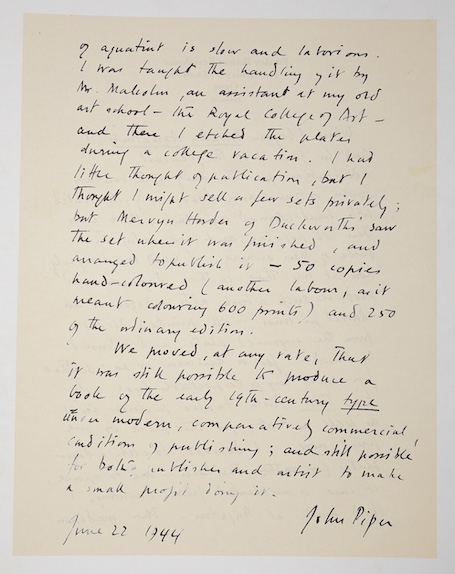 of aquatint is slow and laborious.
I was taught the handling of it by
Mr. Malcolm, an assistant at my old
art school – the Royal College of Art –
and there I etched the plates
during a college vacation. I had
little thought of publication, but I
thought I might sell a few sets privately;
but Mervyn Horder of Duckworths' saw
the set when it was finished, and
arranged to publish it – 50 copies
hand-coloured (another labour, as it
meant colouring 600 prints) and 250
of the ordinary edition.
We proved, at any rate, that
it was still possible to produce a
book of the early 19th-century type
under modern, comparatively 'commercial'
conditions of publishing; and still possible
for both publisher and artist to make
a small profit doing it.
John Piper
June 22 1944